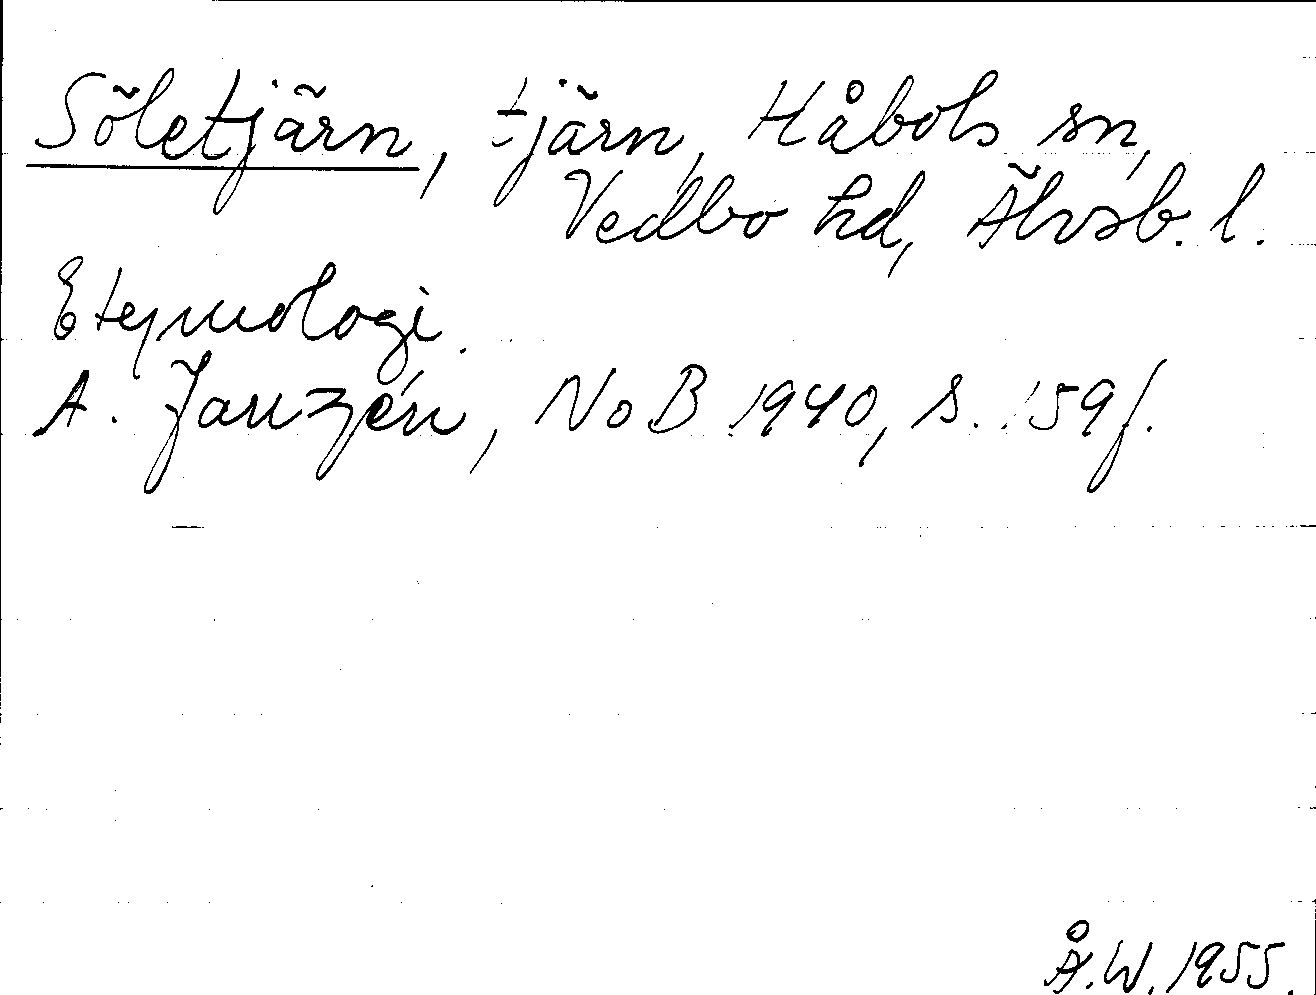 Söletjärn, tjärn, Håbols sn,
Vedbo hd, Älvsb. l.
Etymologi.
A. Janzén, NoB 1940, s. 159 f.
Å.W. 1955.